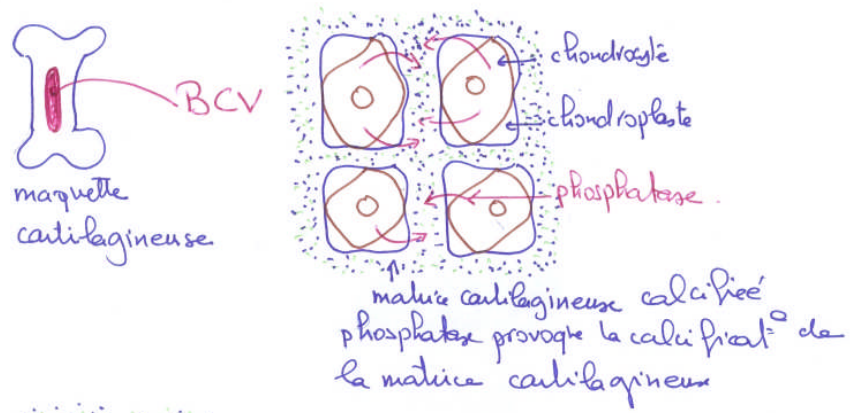 BCV
maquette
cartilagineuse
chondrocyte
chondroplaste
phosphatase.
matrice cartilagineuse calcifiéé
phosphatase provoque la calificat° de
la matrice cartilagineuse